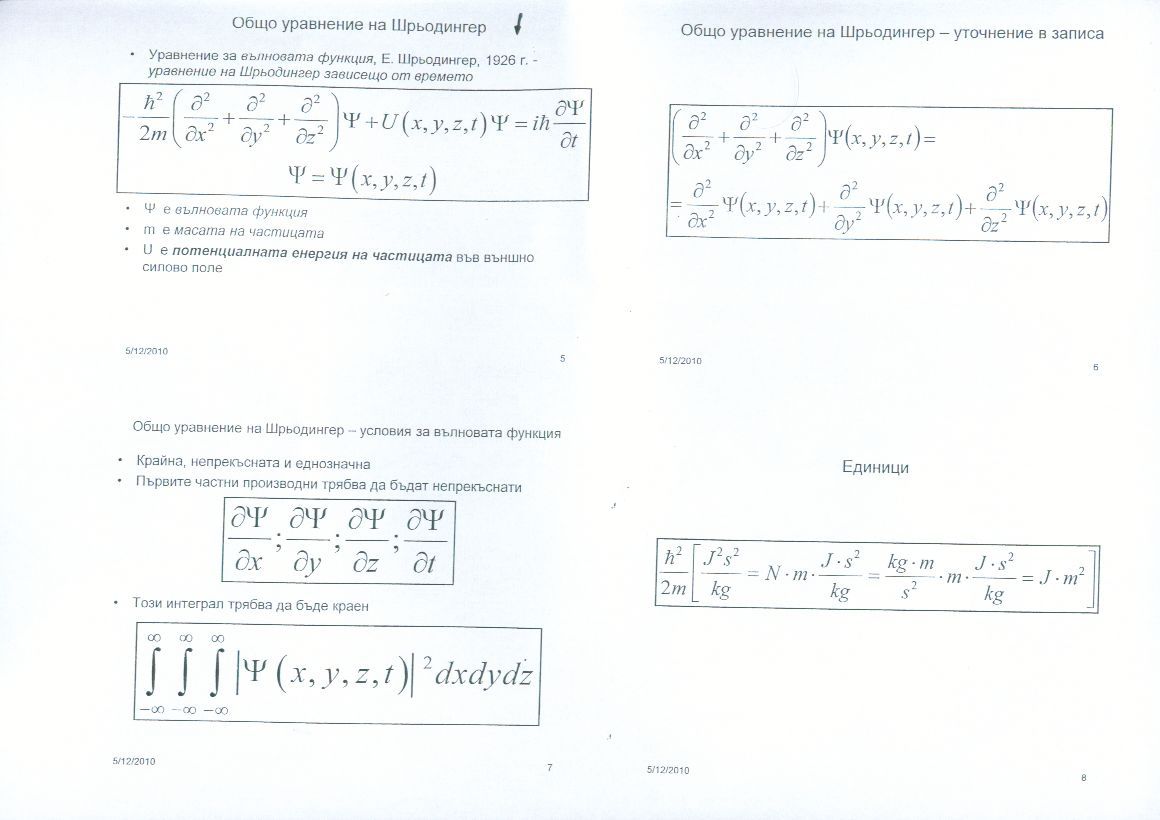 Общо уравнение на Шрьодингер
• Уравнение за вълновата функция, Е. Шрьодингер, 1926 г. -
уравнение на Шрьодингер зависещо от времето
-ħ²/2m (∂²/∂x² + ∂²/∂y² + ∂²/∂z²) Ψ + U(x, y, z, t) Ψ = iħ ∂Ψ/∂t
Ψ = Ψ(x, y, z, t)
• Ψ е вълновата функция
• m е масата на частицата
• U е потенциалната енергия на частицата във външно
силово поле
5/12/2010
5
Общо уравнение на Шрьодингер – уточнение в записа
(∂²/∂x² + ∂²/∂y² + ∂²/∂z²) Ψ(x, y, z, t) =
= ∂²/∂x² Ψ(x, y, z, t) + ∂²/∂y² Ψ(x, y, z, t) + ∂²/∂z² Ψ(x, y, z, t)
5/12/2010
6
Общо уравнение на Шрьодингер – условия за вълновата функция
• Крайна, непрекъсната и еднозначна
• Първите частни производни трябва да бъдат непрекъснати
∂Ψ/∂x ; ∂Ψ/∂y ; ∂Ψ/∂z ; ∂Ψ/∂t
• Този интеграл трябва да бъде краен
∞ ∞ ∞
∫ ∫ ∫ |Ψ(x, y, z, t)|² dxdydz
−∞ −∞ −∞
5/12/2010
7
Единици
ħ²/2m [J²s²/kg = N · m · J · s²/kg = kg · m/s² · m · J · s²/kg = J · m²]
5/12/2010
8